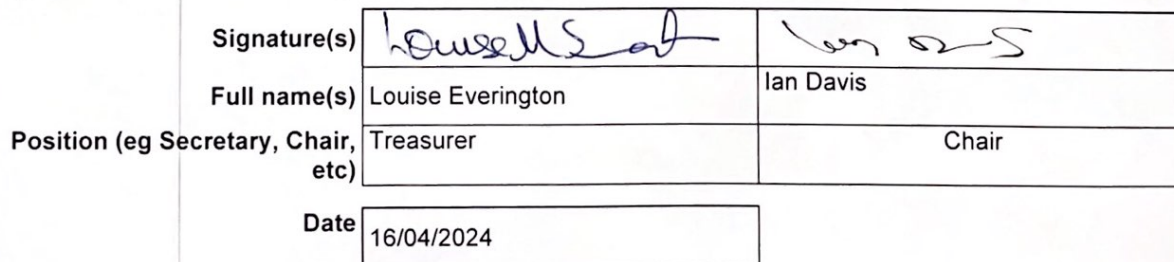 Signature(s)
Full name(s) Louise Everington Ian Davis
Position (eg Secretary, Chair, Treasurer Chair
etc)
Date 16/04/2024